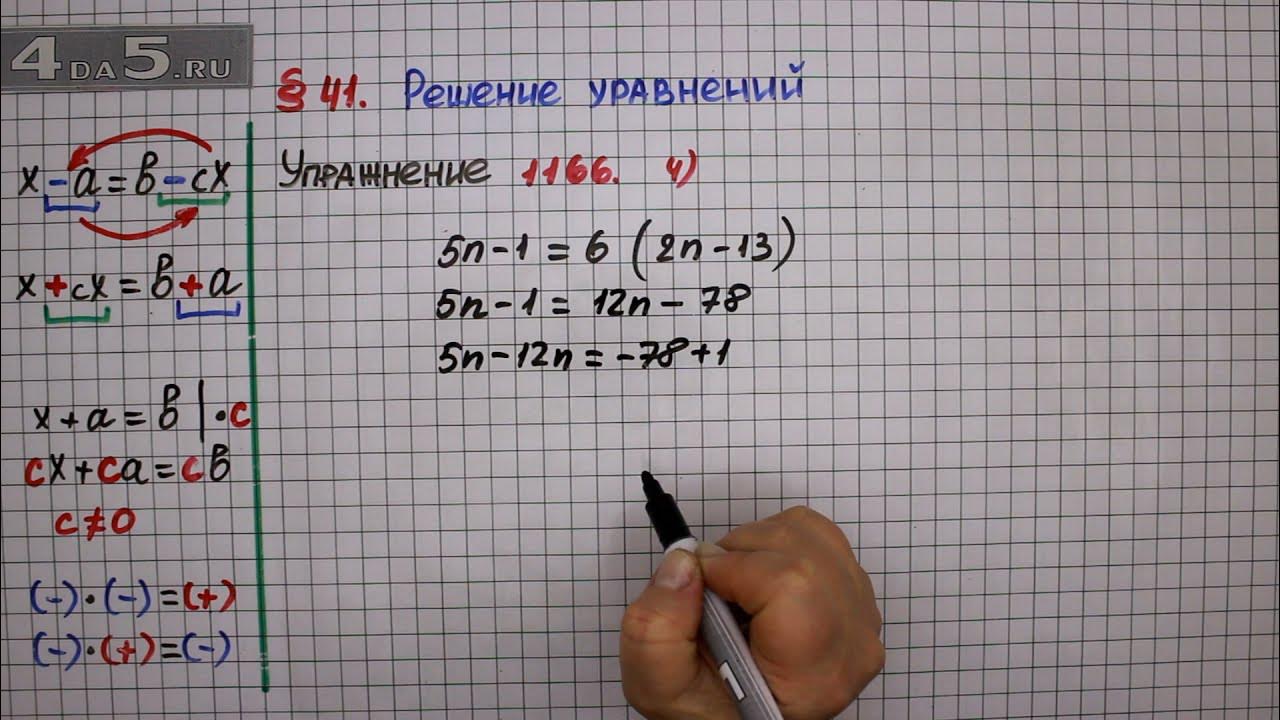 4DA5.RU
§ 41. Решение уравнений
Упражнение 1166. 4)
x-a=b-cx
x+cx=b+a
x+a=b|·c
cx+ca=cb
c≠0
(-)·(-)=(+)
(-)·(+)=(-)
5n-1=6(2n-13)
5n-1=12n-78
5n-12n=-78+1